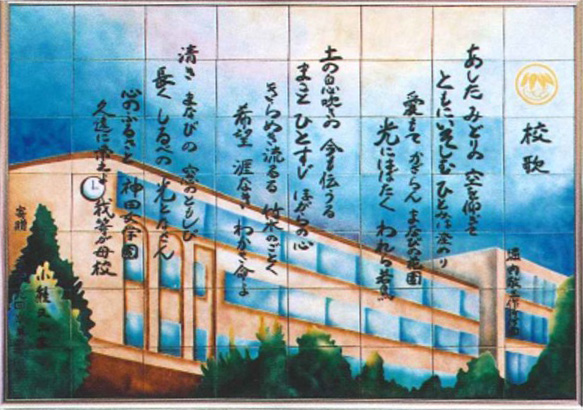 校歌
堀内敬三作
あした みどりの 空を仰ぎて
ともに いそしむ ひとみは
愛もて かざらん まなびの花園
光にほたく われら若鳥
土の息吹きの 今も伝うる
まさと ひとすじ ほがらの心
きらめき流るる 竹水のごとく
希望 涯なき わかき命よ
清き まなびの 窓のともしび
長く しるべの 光となさん
心のふるさと 神田女学園
久遠に栄えよ 我等が母校
寄贈